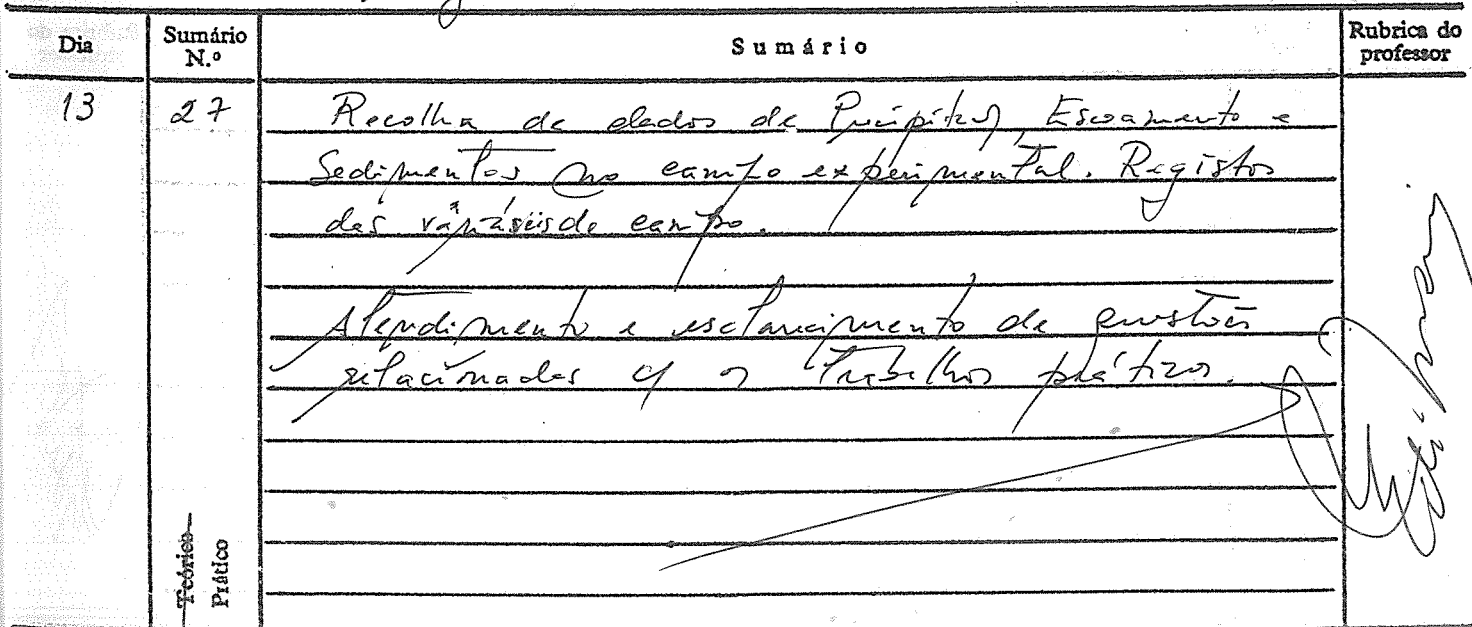 Dia
Sumário N.º
Sumário
Rubrica do professor
13
27
Recolha de dados de Precipitação, Escoamento e
Sedimentos no campo experimental. Registos
das variáveis de campo.
Atendimento e esclarecimento de questões
relacionadas c/ os trabalhos práticos.
Teórico
Prático